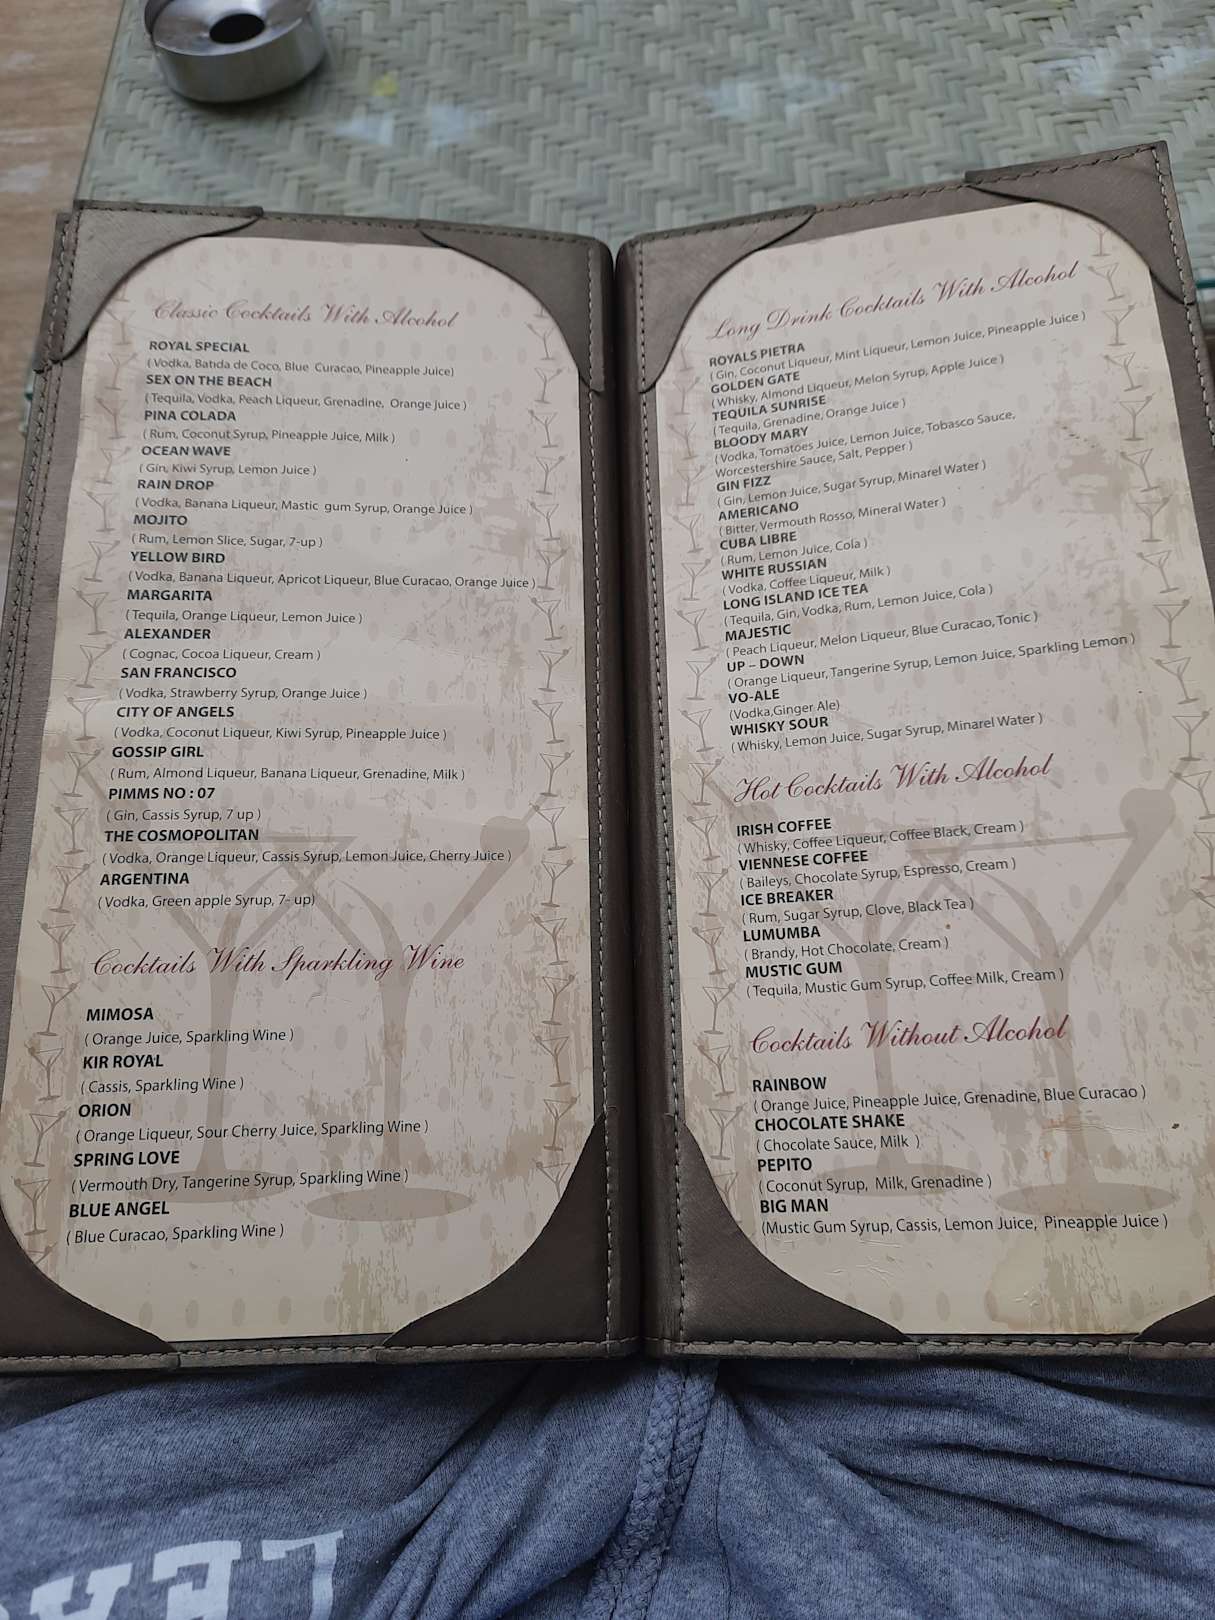 Classic Cocktails With Alcohol
ROYAL SPECIAL
( Vodka, Batida de Coco, Blue Curacao, Pineapple Juice)
SEX ON THE BEACH
( Tequila, Vodka, Peach Liqueur, Grenadine, Orange Juice )
PINA COLADA
( Rum, Coconut Syrup, Pineapple Juice, Milk )
OCEAN WAVE
( Gin, Kiwi Syrup, Lemon Juice )
RAIN DROP
( Vodka, Banana Liqueur, Mastic gum Syrup, Orange Juice )
MOJITO
( Rum, Lemon Slice, Sugar, 7-up )
YELLOW BIRD
( Vodka, Banana Liqueur, Apricot Liqueur, Blue Curacao, Orange Juice )
MARGARITA
( Tequila, Orange Liqueur, Lemon Juice )
ALEXANDER
( Cognac, Cocoa Liqueur, Cream )
SAN FRANCISCO
( Vodka, Strawberry Syrup, Orange Juice )
CITY OF ANGELS
( Vodka, Coconut Liqueur, Kiwi Syrup, Pineapple Juice )
GOSSIP GIRL
( Rum, Almond Liqueur, Banana Liqueur, Grenadine, Milk )
PIMMS NO : 07
( Gin, Cassis Syrup, 7 up )
THE COSMOPOLITAN
( Vodka, Orange Liqueur, Cassis Syrup, Lemon Juice, Cherry Juice )
ARGENTINA
( Vodka, Green apple Syrup, 7- up)
Cocktails With Sparkling Wine
MIMOSA
( Orange Juice, Sparkling Wine )
KIR ROYAL
( Cassis, Sparkling Wine )
ORION
( Orange Liqueur, Sour Cherry Juice, Sparkling Wine )
SPRING LOVE
( Vermouth Dry, Tangerine Syrup, Sparkling Wine )
BLUE ANGEL
( Blue Curacao, Sparkling Wine )
Long Drink Cocktails With Alcohol
ROYALS PIETRA
( Gin, Coconut Liqueur, Mint Liqueur, Lemon Juice, Pineapple Juice )
GOLDEN GATE
( Whisky, Almond Liqueur, Melon Syrup, Apple Juice )
TEQUILA SUNRISE
( Tequila, Grenadine, Orange Juice )
BLOODY MARY
( Vodka, Tomatoes Juice, Lemon Juice, Tobasco Sauce,
Worcestershire Sauce, Salt, Pepper )
GIN FIZZ
( Gin, Lemon Juice, Sugar Syrup, Minarel Water )
AMERICANO
( Bitter, Vermouth Rosso, Mineral Water )
CUBA LIBRE
( Rum, Lemon Juice, Cola )
WHITE RUSSIAN
( Vodka, Coffee Liqueur, Milk )
LONG ISLAND ICE TEA
( Tequila, Gin, Vodka, Rum, Lemon Juice, Cola )
MAJESTIC
( Peach Liqueur, Melon Liqueur, Blue Curacao, Tonic )
UP – DOWN
( Orange Liqueur, Tangerine Syrup, Lemon Juice, Sparkling Lemon )
VO-ALE
(Vodka,Ginger Ale)
WHISKY SOUR
( Whisky, Lemon Juice, Sugar Syrup, Minarel Water )
Hot Cocktails With Alcohol
IRISH COFFEE
( Whisky, Coffee Liqueur, Coffee Black, Cream )
VIENNESE COFFEE
( Baileys, Chocolate Syrup, Espresso, Cream )
ICE BREAKER
( Rum, Sugar Syrup, Clove, Black Tea )
LUMUMBA
( Brandy, Hot Chocolate, Cream )
MUSTIC GUM
( Tequila, Mustic Gum Syrup, Coffee Milk, Cream )
Cocktails Without Alcohol
RAINBOW
( Orange Juice, Pineapple Juice, Grenadine, Blue Curacao )
CHOCOLATE SHAKE
( Chocolate Sauce, Milk )
PEPITO
( Coconut Syrup, Milk, Grenadine )
BIG MAN
(Mustic Gum Syrup, Cassis, Lemon Juice, Pineapple Juice )